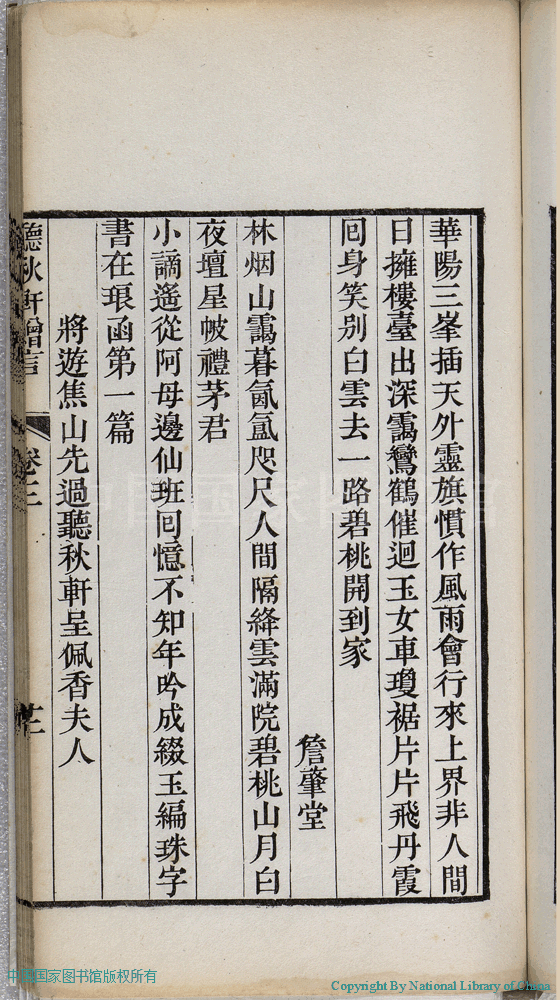 華陽三峯插天外靈旗慣作風雨會行來上界非人間
日擁樓臺出深靄鸞鶴催迴玉女車瓊裾片片飛丹霞
囘身笑別白雲去一路碧桃開到家
詹肇堂
林烟山靄暮氤氳咫尺人間隔絳雲滿院碧桃山月白
夜壇星帔禮茅君
小謫遙從阿母邊仙班囘憶不知年吟成綴玉編珠字
書在琅函第一篇
將遊焦山先過聽秋軒呈佩香夫人
聽秋軒贈言
卷三
十二
中国国家图书馆
中国国家图书馆版权所有
Copyright By National Library of China